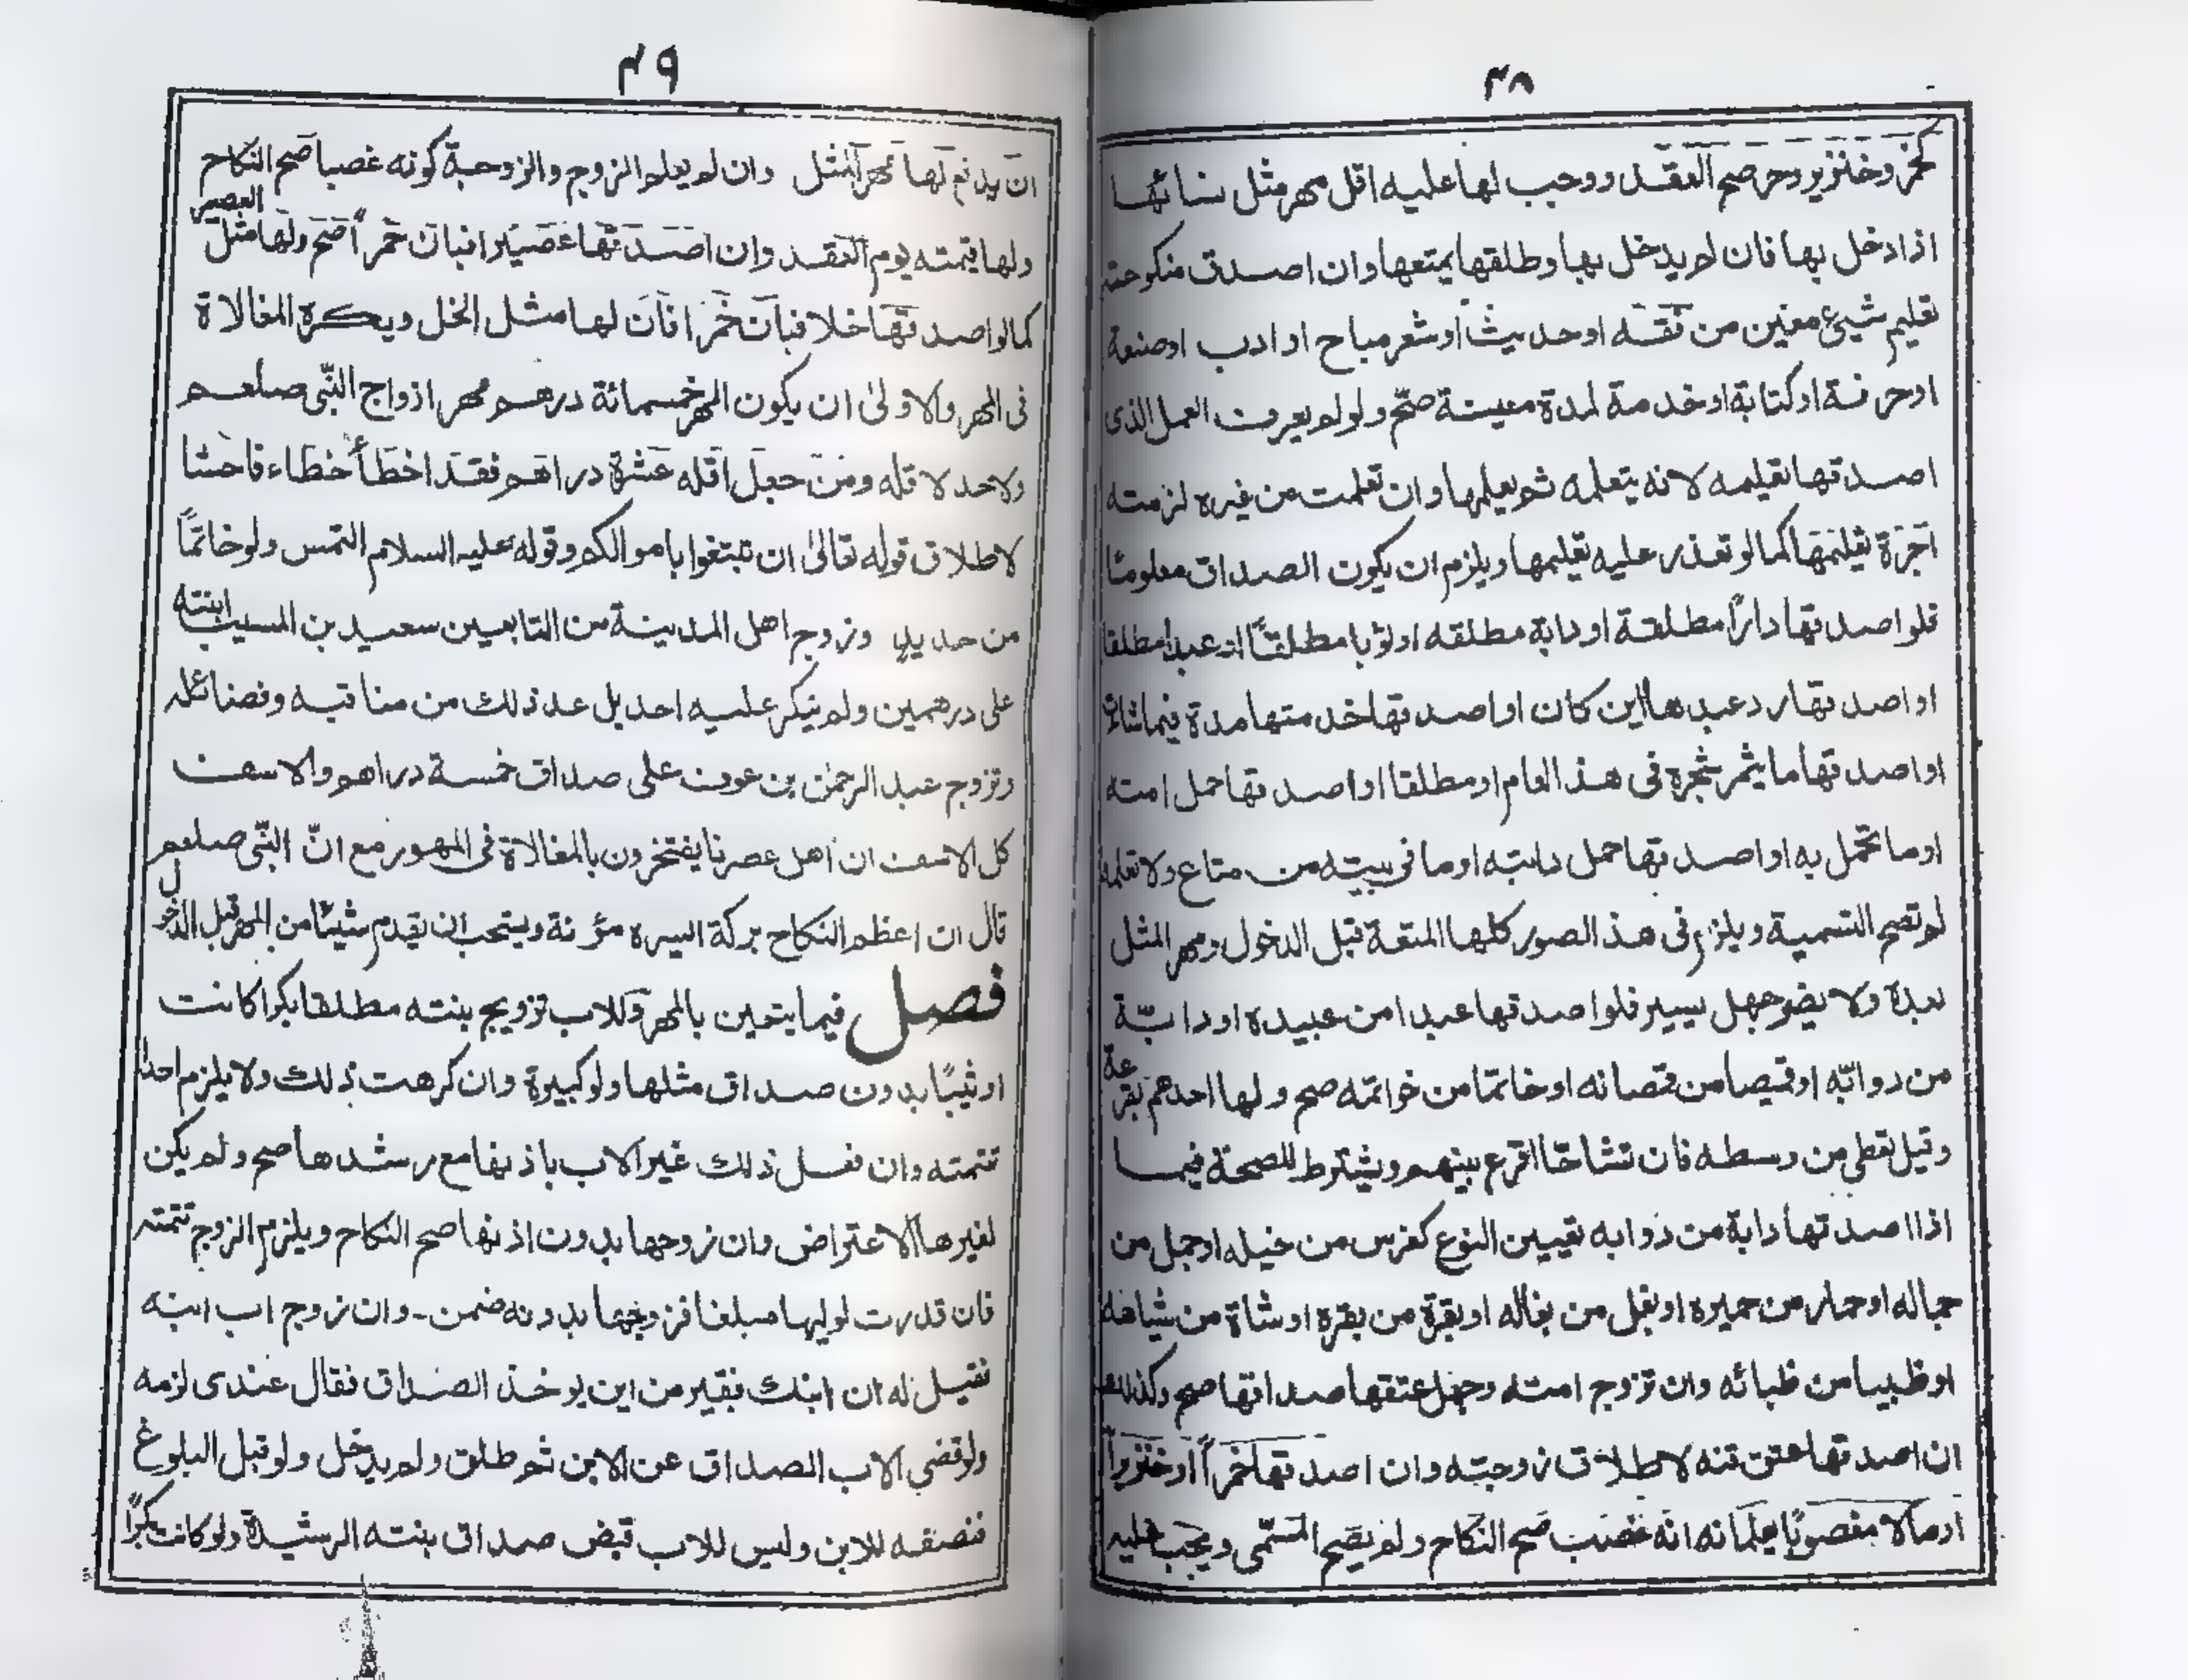 ٤٨
كخمر وخنزير وحر صح العقد ووجب لها عليه اقل مهر مثل نسائها
اذا دخل بها فان لم يدخل بها وطلقها يمتعها وان اصدق منكوحته
تعليم شيئ معين من فقه او حديث او شعر مباح او ادب اوصنعة
اوحرفة اوكتابة اوخدمة لمدة معينة صحّ ولو لم يعرف العمل الذى
اصدقها تعليمه لانه يتعلمه ثم يعلمها وان تعلمت من غيره لزمته
اجرة تعليمها كما لو تعذر عليه تعليمها ويلزم ان يكون الصداق معلومًا
فلو اصدقها دارًا مطلقة او دابة مطلقه او ثوبا مطلقًا او عبدا مطلقا
او اصدقها رد عبدها اين كان او اصدقها خدمتها مدة فيما شاءت
او اصدقها ما يثمر شجره فى هذ العام او مطلقا او اصدقها حمل امته
اوما تحمل به او اصدقها حمل دابته اوما فى بيته من متاع ولا تعلمه
لم تصح التسمية ويلزم فى هذ الصور كلها المتعة قبل الدخول ومهر المثل
بعدة ولا يضر جهل يسير فلو اصدقها عبدا من عبيده او دابّة
من دوابّه اوقميصا من قمصانه اوخاتما من خواتمه صح ولها احدهم بقرعة
وقيل تعطى من وسطه فان تشاحّا اقرع بينهم ويشترط للصحة فيما
اذا اصدقها دابة من دوابه تعيين النوع كفرس من خيله اوجمل من
جماله اوحمار من حميره اوبغل من بغاله اوبقرة من بقره اوشاة من شياهه
اوظبيا من ظبائه وان تزوج امته وجعل عتقها صداقها صح وكذلك
ان اصدقها عتق قنه لاطلاق زوجته وان اصدقها خمراً اوخنزيراً
اومالا مغصوبًا يعلمانه انه غصب صح النكاح ولم يصح المسمّى ويجب عليه
٤٩
ان يدفع لها مهر المثل وان لم يعلم الزوج والزوجة كونه غصبا صح النكاح
ولها قيمته يوم العقد وان اصدقها عصيرا فبان خمراً صح ولها مثل العصير
كما لو اصدقها خلا فبان خمرا فان لها مثل الخل ويكره المغالاة
فى المهر والاولىٰ ان يكون المهر خمسمائة درهم مهر ازواج النّبى صلعم
ولاحد لاقله ومن جعل اقله عشرة دراهم فقد اخطأ خطاء فاحشا
لاطلاق قوله تعالىٰ ان تبتغوا باموالكم وقوله عليه السلام التمس ولو خاتمًا
من حديد وزوج اهل المدينة من التابعين سعيد بن المسيب ابنته
على درهمين ولم ينكر عليه احد بل عد ذلك من مناقبه وفضائله
وتزوج عبد الرحمٰن بن عوف على صداق خمسة دراهم والاسف
كل الاسف ان اهل عصرنا يفتخرون بالمغالاة فى المهور مع انّ النّبى صلعم
قال ان اعظم النكاح بركة ايسره مؤنة ويستحب ان يقدم شيئا من المهر قبل الدخول
فصل فيما يتعين بالمهر وللاب تزويج بنته مطلقا بكرا كانت
او ثيبًا بدون صداق مثلها ولو كبيرة وان كرهت ذلك ولا يلزم احدا
تتمته وان فعل ذلك غير الاب باذنها مع رشدها صح ولم يكن
لغيرها الاعتراض وان زوجها بدون اذنها صح النكاح ويلزم الزوج تتمته
فان قدرت لوليها مبلغا فزوجها بدونه ضمن - وان زوج اب ابنه
فقيل له ان ابنك فقير من اين يوخذ الصداق فقال عندى لزمه
ولو قضى الاب الصداق عن الابن ثم طلق ولم يدخل ولو قبل البلوغ
فنصفه للابن وليس للاب قبض صداق بنته الرشيدة ولو كانت بكرًا